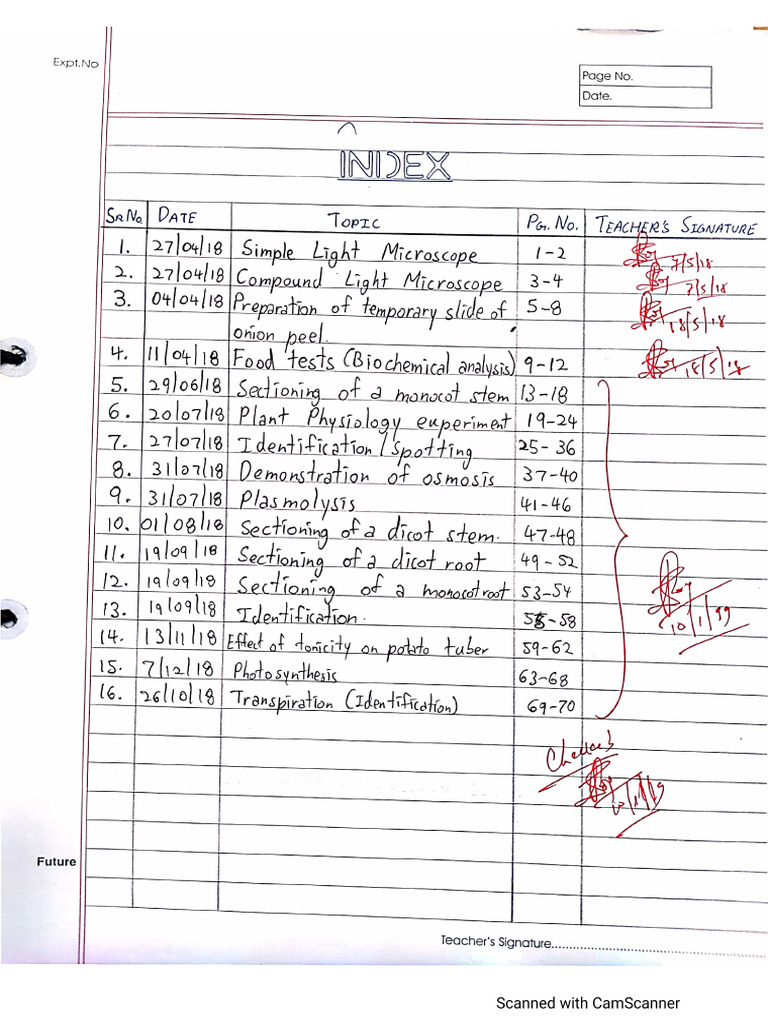 Expt.No
Page No.
Date.
INDEX
SR.No. DATE TOPIC PG. No. TEACHER'S SIGNATURE
1. 27/04/18 Simple Light Microscope 1-2 7/5/18
2. 27/04/18 Compound Light Microscope 3-4 7/5/18
3. 04/04/18 Preparation of temporary slide of 5-8 18/5/18
onion peel.
4. 11/04/18 Food tests (Biochemical analysis) 9-12 18/5/18
5. 29/06/18 Sectioning of a monocot stem 13-18
6. 20/07/18 Plant Physiology experiment 19-24
7. 27/07/18 Identification/Spotting 25-36
8. 31/07/18 Demonstration of osmosis 37-40
9. 31/07/18 Plasmolysis 41-46
10. 01/08/18 Sectioning of a dicot stem. 47-48
11. 19/09/18 Sectioning of a dicot root 49-52
12. 19/09/18 Sectioning of a monocot root 53-54
13. 19/09/18 Identification. 55-58
14. 13/11/18 Effect of tonicity on potato tuber 59-62
15. 7/12/18 Photosynthesis 63-68
16. 26/10/18 Transpiration (Identification) 69-70
Future
Teacher's Signature
Scanned with CamScanner